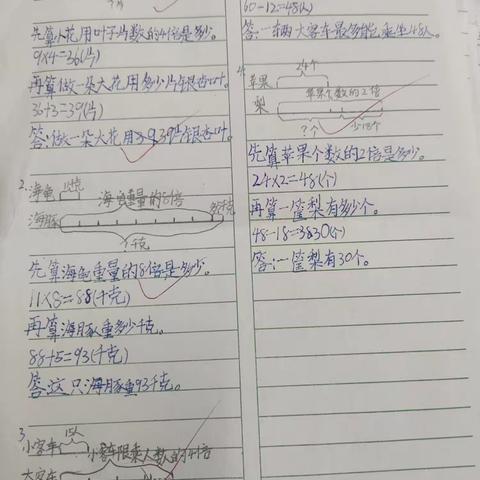 先算小花用叶子片数的4倍是多少。
9×4=36(片)
再算做一朵大花用多少片银杏叶。
36+3=39(片)
答:做一朵大花用39片银杏叶。
2.海龟 11千克
海龟重量的8倍
海豚 5千克
?千克
先算海龟重量的8倍是多少。
11×8=88(千克)
再算海豚重多少千克。
88+5=93(千克)
答:这只海豚重93千克。
3.
小客车 15人
小客车限乘人数的4倍
大客车
60-12=48(人)
答:一辆大客车最多能乘坐48人。
4.
苹果 24个
苹果个数的2倍
梨
?个
少18个
先算苹果个数的2倍是多少。
24×2=48(个)
再算一筐梨有多少个。
48-18=30(个)
答:一筐梨有30个。